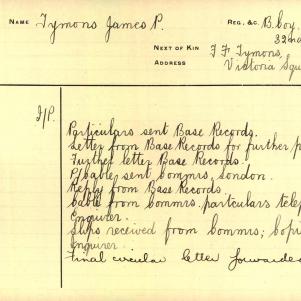 NAME Tymons James P. REG., &C. B. Coy.
32nd
NEXT OF KIN F. F. Tymons,
ADDRESS Victoria Squ
I/P. Particulars sent Base Records.
Letter from Base Records for further p
Further letter Base Records.
P/Cable sent Commrs, London.
Reply from Base Records
Cable from Commrs. particulars telep
Enquirer.
Slips received from Commrs; Copi
Enquirer.
Final circular letter forwarded